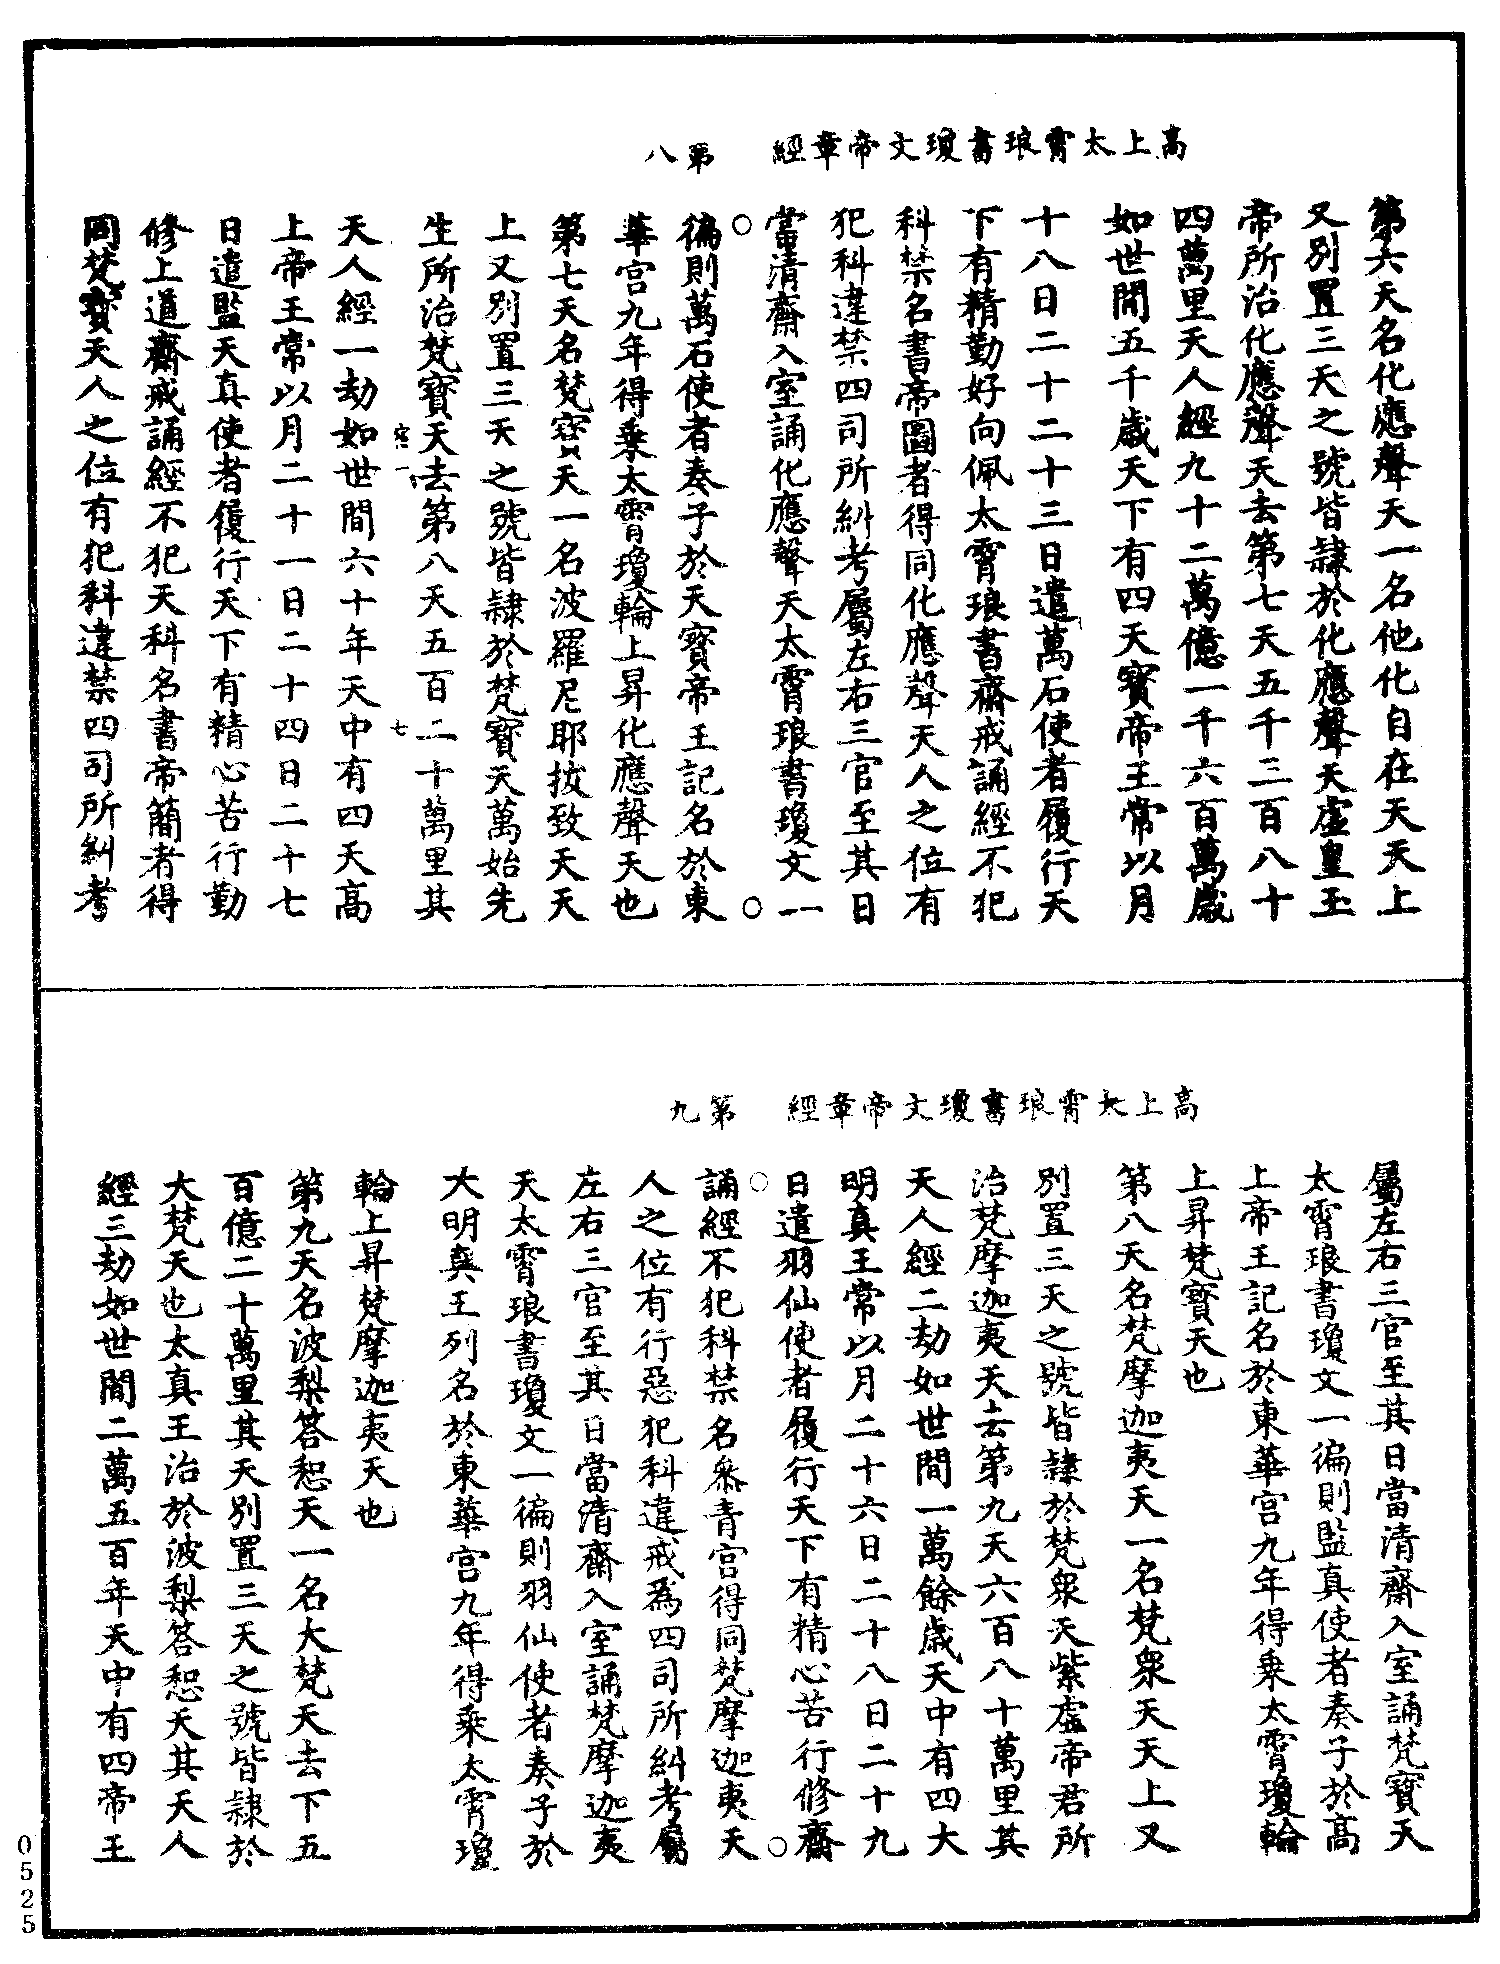 高上太霄琅書瓊文帝章經　第八
第六天名化應聲天一名他化自在天天上
又別置三天之號皆隷於化應聲天虛皇玉
帝所治化應聲天去第七天五千三百八十
四萬里天人經九十二萬億一千六百萬歲
如世間五千歲天下有四天寶帝王常以月
十八日二十二十三日遣萬石使者履行天
下有精勤好向佩太霄琅書齋戒誦經不犯
科禁名書帝圖者得同化應聲天人之位有
犯科違禁四司所糾考屬左右三官至其日
當清齋入室誦化應聲天太霄琅書瓊文一
徧則萬石使者奏子於天寶帝王記名於東
華宮九年得乘太霄瓊輪上昇化應聲天也
第七天名梵寶天一名波羅尼耶拔致天天
上又別置三天之號皆隷於梵寶天萬始先
生所治梵寶天去第八天五百二十萬里其
七
天人經一劫如世間六十年天中有四天高
上帝王常以月二十一日二十四日二十七
日遣監天真使者履行天下有精心苦行勤
修上道齋戒誦經不犯天科名書帝簡者得
同梵寶天人之位有犯科違禁四司所糾考
高上太霄琅書瓊文帝章經　第九
屬左右三官至其日當清齋入室誦梵寶天
太霄琅書瓊文一徧則監真使者奏子於高
上帝王記名於東華宮九年得乘太霄瓊輪
上昇梵寶天也
第八天名梵摩迦夷天一名梵衆天天上又
別置三天之號皆隷於梵衆天紫虛帝君所
治梵摩迦夷天去第九天六百八十萬里其
天人經二劫如世間一萬餘歲天中有四大
明真王常以月二十六日二十八日二十九
日遣羽仙使者履行天下有精心苦行修齋
誦經不犯科禁名叅青宮得同梵摩迦夷天
人之位有行惡犯科違戒為四司所糾考屬
左右三官至其日當清齋入室誦梵摩迦夷
天太霄琅書瓊文一徧則羽仙使者奏子於
大明真王列名於東華宮九年得乘太霄瓊
輪上昇梵摩迦夷天也
第九天名波梨答惒天一名大梵天去下五
百億二十萬里其天別置三天之號皆隷於
大梵天也太真王治於波梨答惒天其天人
經三劫如世間二萬五百年天中有四帝王
0525